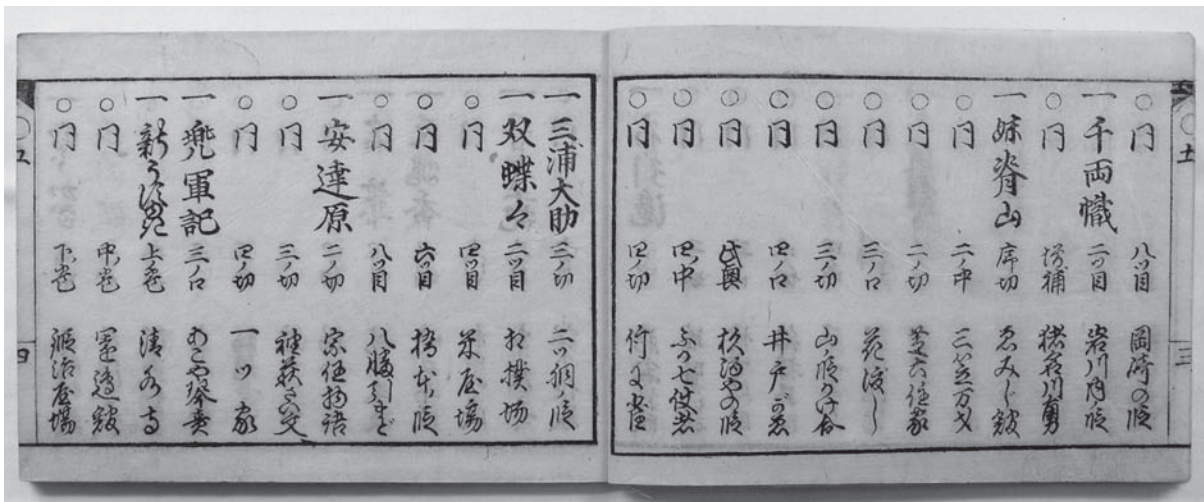 ○同 八ツ目 岡崎の段
一 千両幟 二ツ目 岩川内ノ段
○同 増補 猪名川勇
一 妹脊山 序切 ゑみじ舘
○同 二ノ中 万才
○同 二ノ切 芝六住家
○同 三ノ口 花渡し
○同 三ノ切 山ノ段かけ合
○同 四ノ口 井戸がゑ
○同 奥 杉酒やの段
○同 四ノ中 ふか七使者
○同 四ノ切 竹に雀
三
一 三浦大助 三ノ切 二ツ胴ノ段
一 双蝶々 二ツ目 相撲場
○同 四ツ目 米屋場
○同 六ツ目 橋本ノ段
○同 八ツ目 八幡引まど
一 安達原 二ノ切 宗任物語
○同 三ノ切 袖萩さい文
○同 四ノ切 一ツ家
一 兜軍記 三ノ口 あこや琴責
一 新うす雪 上ノ巻 清水寺
○同 中ノ巻 園邊舘
○同 下ノ巻 鍛冶屋場
四